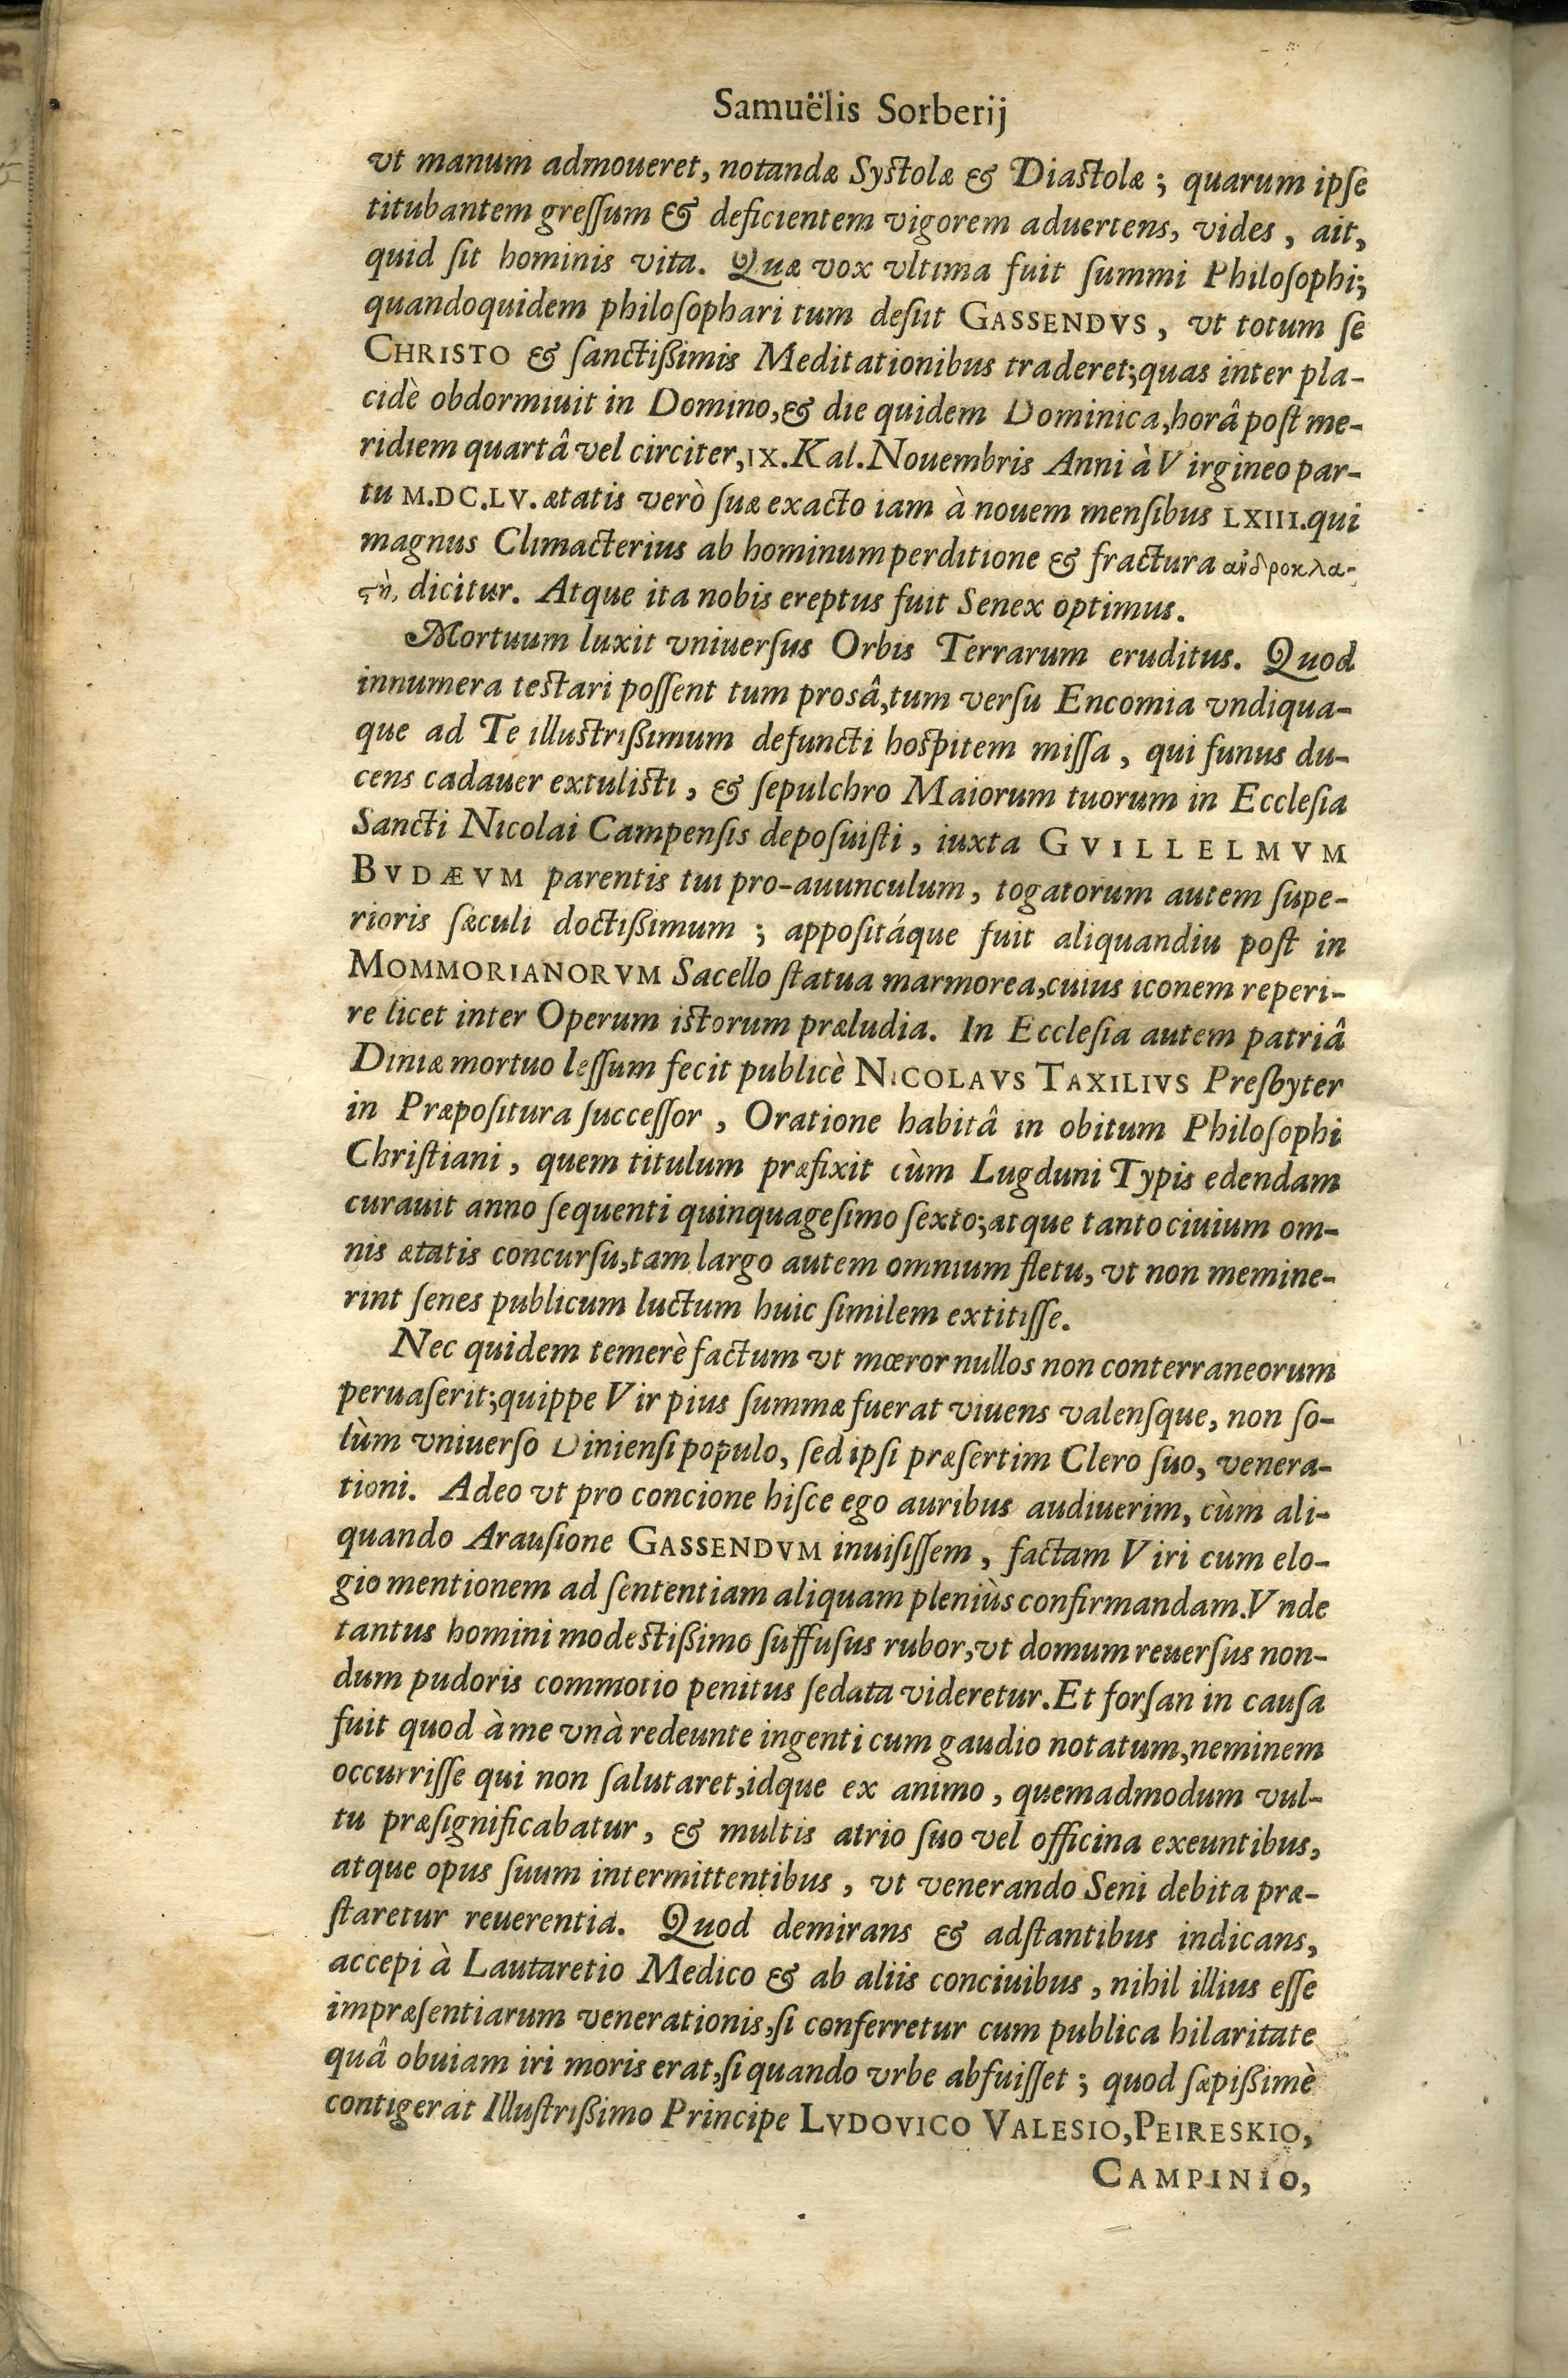 Samuëlis Sorberij
vt manum admoueret, notandæ Systolæ & Diastolæ ; quarum ipſe
titubantem greſſum & deficientem vigorem aduertens, vides , ait,
quid ſit hominis vita. Quæ vox vltima fuit ſummi Philoſophi;
quandoquidem philoſophari tum deſiit GASSENDVS , vt totum ſe
CHRISTO & ſanctißimis Meditationibus traderet; quas inter pla-
cidè obdormiuit in Domino, & die quidem Dominica, horâ poſt me-
ridiem quartâ vel circiter, IX. Kal. Nouembris Anni à Virgineo par-
tu M.DC.LV. ætatis verò ſuæ exacto iam à nouem menſibus LXIII. qui
magnus Climacterius ab hominum perditione & fractura ἀνδροκλα-
ϛὴ, dicitur. Atque ita nobis ereptus fuit Senex optimus.
Mortuum luxit vniuerſus Orbis Terrarum eruditus. Quod
innumera testari poſſent tum prosâ, tum verſu Encomia vndiqua-
que ad Te illustrißimum defuncti hospitem miſſa , qui funus du-
cens cadauer extulisti , & ſepulchro Maiorum tuorum in Eccleſia
Sancti Nicolai Campenſis depoſuiſti , iuxta GVILLELMVM
BVDÆVM parentis tui pro-auunculum , togatorum autem ſupe-
rioris ſæculi doctißimum ; appoſitáque fuit aliquandiu poſt in
MOMMORIANORVM Sacello ſtatua marmorea, cuius iconem reperi-
re licet inter Operum istorum præludia. In Eccleſia autem patriâ
Diniæ mortuo leſſum fecit publicè NICOLAVS TAXILIVS Presbyter
in Præpoſitura ſucceſſor , Oratione habitâ in obitum Philoſophi
Chriſtiani , quem titulum præfixit cùm Lugduni Typis edendam
curauit anno ſequenti quinquageſimo ſexto; atque tanto ciuium om-
nis ætatis concurſu, tam largo autem omnium fletu, vt non memine-
rint ſenes publicum luctum huic ſimilem extitiſſe.
Nec quidem temerè factum vt mœror nullos non conterraneorum
peruaſerit; quippe Vir pius ſummæ fuerat viuens valenſque, non ſo-
lùm vniuerſo Dinienſi populo, ſed ipſi præſertim Clero ſuo, venera-
tioni. Adeo vt pro concione hiſce ego auribus audiuerim, cùm ali-
quando Arauſione GASSENDVM inuiſiſſem , factam Viri cum elo-
gio mentionem ad ſententiam aliquam pleniùs confirmandam. Vnde
tantus homini modestißimo ſuffuſus rubor, vt domum reuerſus non-
dum pudoris commotio penitus ſedata videretur. Et forſan in cauſa
fuit quod à me vnà redeunte ingenti cum gaudio notatum, neminem
occurriſſe qui non ſalutaret, idque ex animo , quemadmodum vul-
tu præſignificabatur , & multis atrio ſuo vel officina exeuntibus,
atque opus ſuum intermittentibus , vt venerando Seni debita præ-
ſtaretur reuerentia. Quod demirans & adſtantibus indicans,
accepi à Lautaretio Medico & ab aliis conciuibus , nihil illius eſſe
impræſentiarum venerationis, ſi conferretur cum publica hilaritate
quâ obuiam iri moris erat, ſi quando vrbe abfuiſſet ; quod ſæpißimè
contigerat Illuſtrißimo Principe LVDOVICO VALESIO, PEIRESKIO,
CAMPINIO,